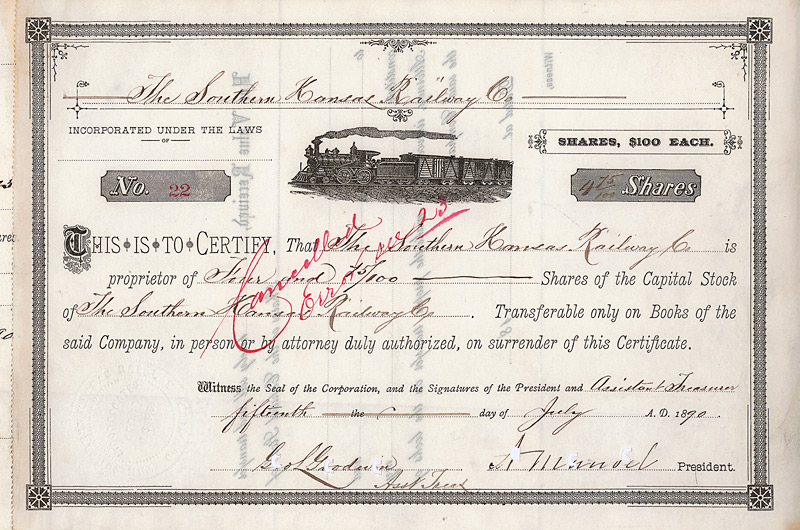 The Southern Kansas Railway Co
INCORPORATED UNDER THE LAWS
OF
SHARES, $100 EACH.
No. 22
4 75/100 Shares
THIS IS TO CERTIFY, That The Southern Kansas Railway Co is
proprietor of Four and 75/100 Shares of the Capital Stock
of The Southern Kansas Railway Co. Transferable only on Books of the
said Company, in person or by attorney duly authorized, on surrender of this Certificate.
Cancelled
Witness the Seal of the Corporation, and the Signatures of the President and Assistant Treasurer
fifteenth the day of July A.D. 1890.
Geo L Goodwin
President.
Asst Treas